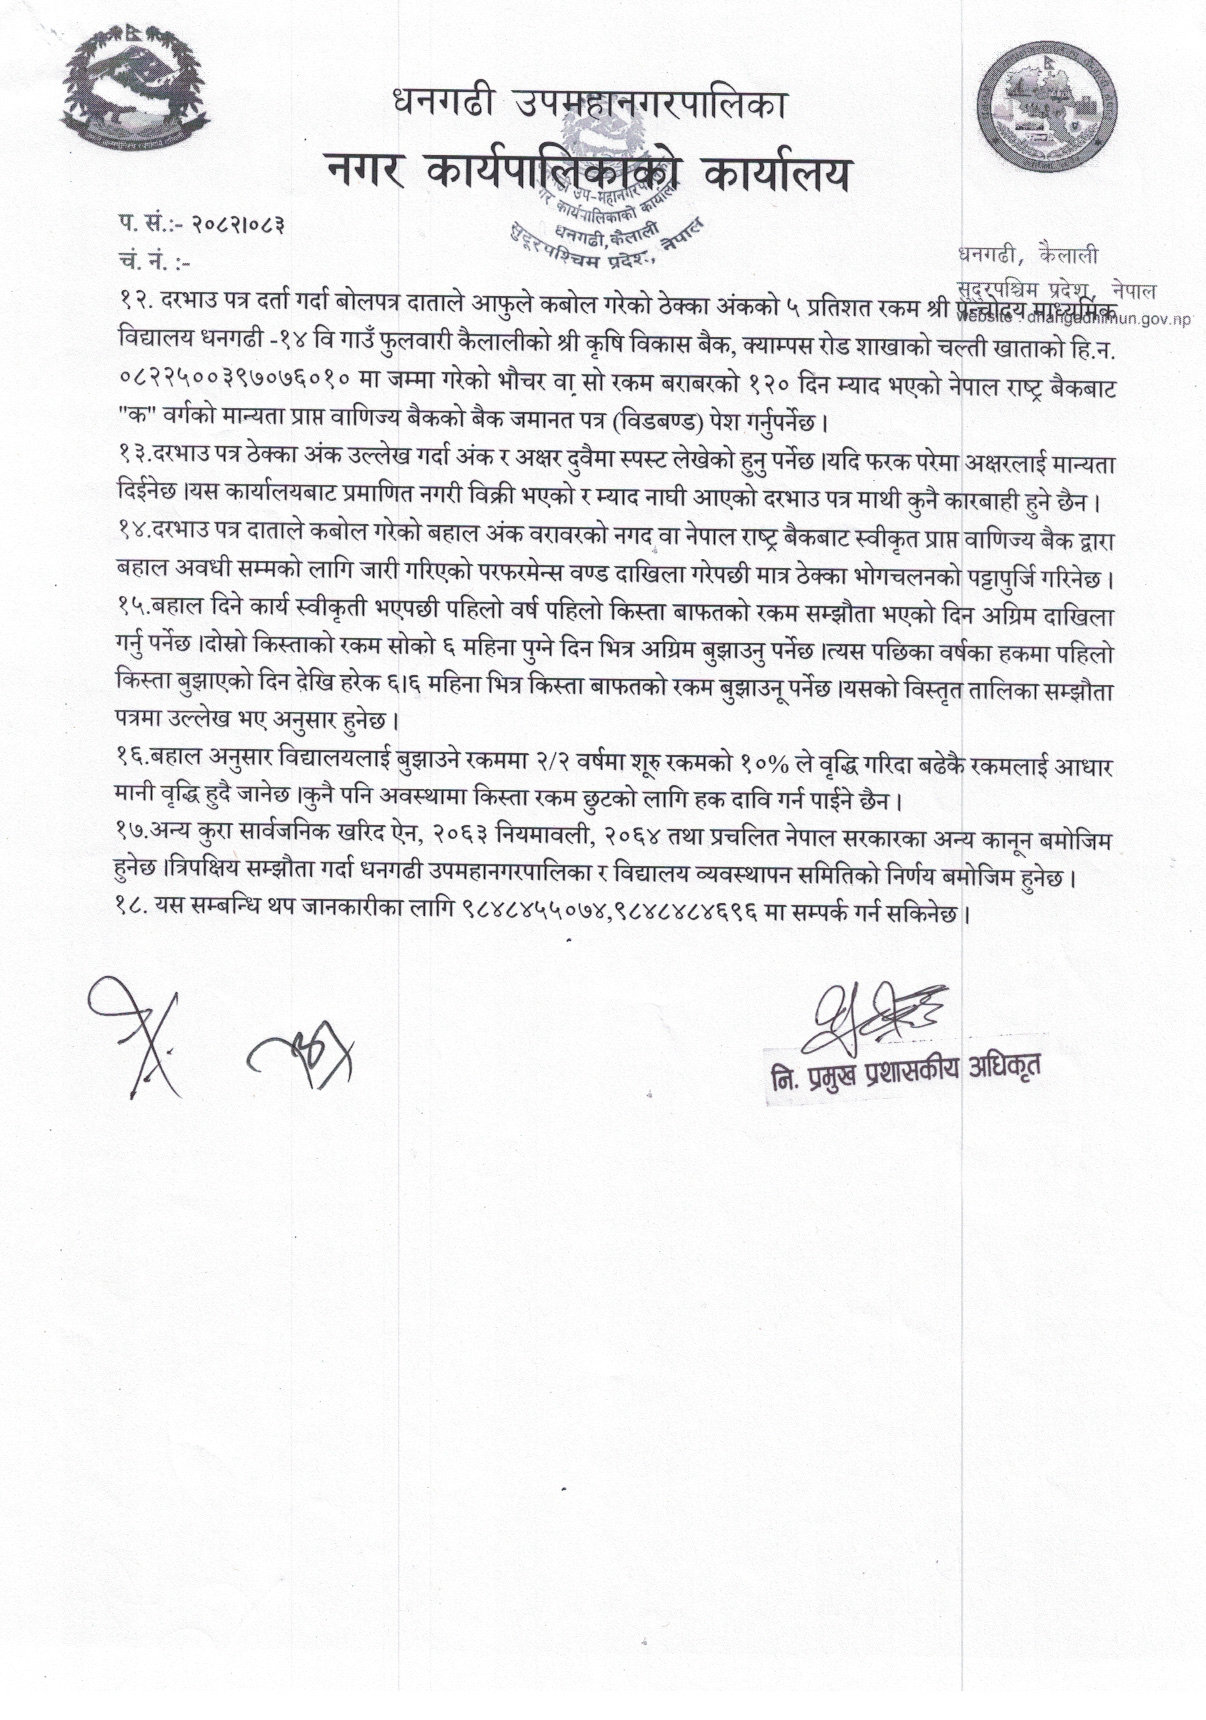 धनगढी उपमहानगरपालिका
नगर कार्यपालिकाको कार्यालय
उप-महानगरपालिका
नगर कार्यपालिकाको कार्यालय
धनगढी, कैलाली
सुदूरपश्चिम प्रदेश, नेपाल
प. सं.:- २०८२।०८३
चं. नं. :-
धनगढी, कैलाली
सुदुरपश्चिम प्रदेश, नेपाल
website : dhangadhimun.gov.np
१२. दरभाउ पत्र दर्ता गर्दा बोलपत्र दाताले आफुले कबोल गरेको ठेक्का अंकको ५ प्रतिशत रकम श्री पञ्चोदय माध्यमिक
विद्यालय धनगढी -१४ वि गाउँ फुलवारी कैलालीको श्री कृषि विकास बैक, क्याम्पस रोड शाखाको चल्ती खाताको हि.न.
०८२२५००३९७०७६०१० मा जम्मा गरेको भौचर वा सो रकम बराबरको १२० दिन म्याद भएको नेपाल राष्ट्र बैकबाट
"क" वर्गको मान्यता प्राप्त वाणिज्य बैकको बैक जमानत पत्र (विडबण्ड) पेश गर्नुपर्नेछ ।
१३.दरभाउ पत्र ठेक्का अंक उल्लेख गर्दा अंक र अक्षर दुवैमा स्पस्ट लेखेको हुनु पर्नेछ ।यदि फरक परेमा अक्षरलाई मान्यता
दिईनेछ ।यस कार्यालयबाट प्रमाणित नगरी विक्री भएको र म्याद नाघी आएको दरभाउ पत्र माथी कुनै कारबाही हुने छैन ।
१४.दरभाउ पत्र दाताले कबोल गरेको बहाल अंक वरावरको नगद वा नेपाल राष्ट्र बैकबाट स्वीकृत प्राप्त वाणिज्य बैक द्वारा
बहाल अवधी सम्मको लागि जारी गरिएको परफरमेन्स वण्ड दाखिला गरेपछी मात्र ठेक्का भोगचलनको पट्टापुर्जि गरिनेछ ।
१५.बहाल दिने कार्य स्वीकृती भएपछी पहिलो वर्ष पहिलो किस्ता बाफतको रकम सम्झौता भएको दिन अग्रिम दाखिला
गर्नु पर्नेछ ।दोस्रो किस्ताको रकम सोको ६ महिना पुग्ने दिन भित्र अग्रिम बुझाउनु पर्नेछ ।त्यस पछिका वर्षका हकमा पहिलो
किस्ता बुझाएको दिन देखि हरेक ६।६ महिना भित्र किस्ता बाफतको रकम बुझाउनू पर्नेछ ।यसको विस्तृत तालिका सम्झौता
पत्रमा उल्लेख भए अनुसार हुनेछ ।
१६.बहाल अनुसार विद्यालयलाई बुझाउने रकममा २/२ वर्षमा शूरु रकमको १०% ले वृद्धि गरिदा बढेकै रकमलाई आधार
मानी वृद्धि हुदै जानेछ ।कुनै पनि अवस्थामा किस्ता रकम छुटको लागि हक दावि गर्न पाईने छैन ।
१७.अन्य कुरा सार्वजनिक खरिद ऐन, २०६३ नियमावली, २०६४ तथा प्रचलित नेपाल सरकारका अन्य कानून बमोजिम
हुनेछ ।त्रिपक्षिय सम्झौता गर्दा धनगढी उपमहानगरपालिका र विद्यालय व्यवस्थापन समितिको निर्णय बमोजिम हुनेछ ।
१८. यस सम्बन्धि थप जानकारीका लागि ९८४८४५५०७४,९८४८४८४६९६ मा सम्पर्क गर्न सकिनेछ ।
नि. प्रमुख प्रशासकीय अधिकृत